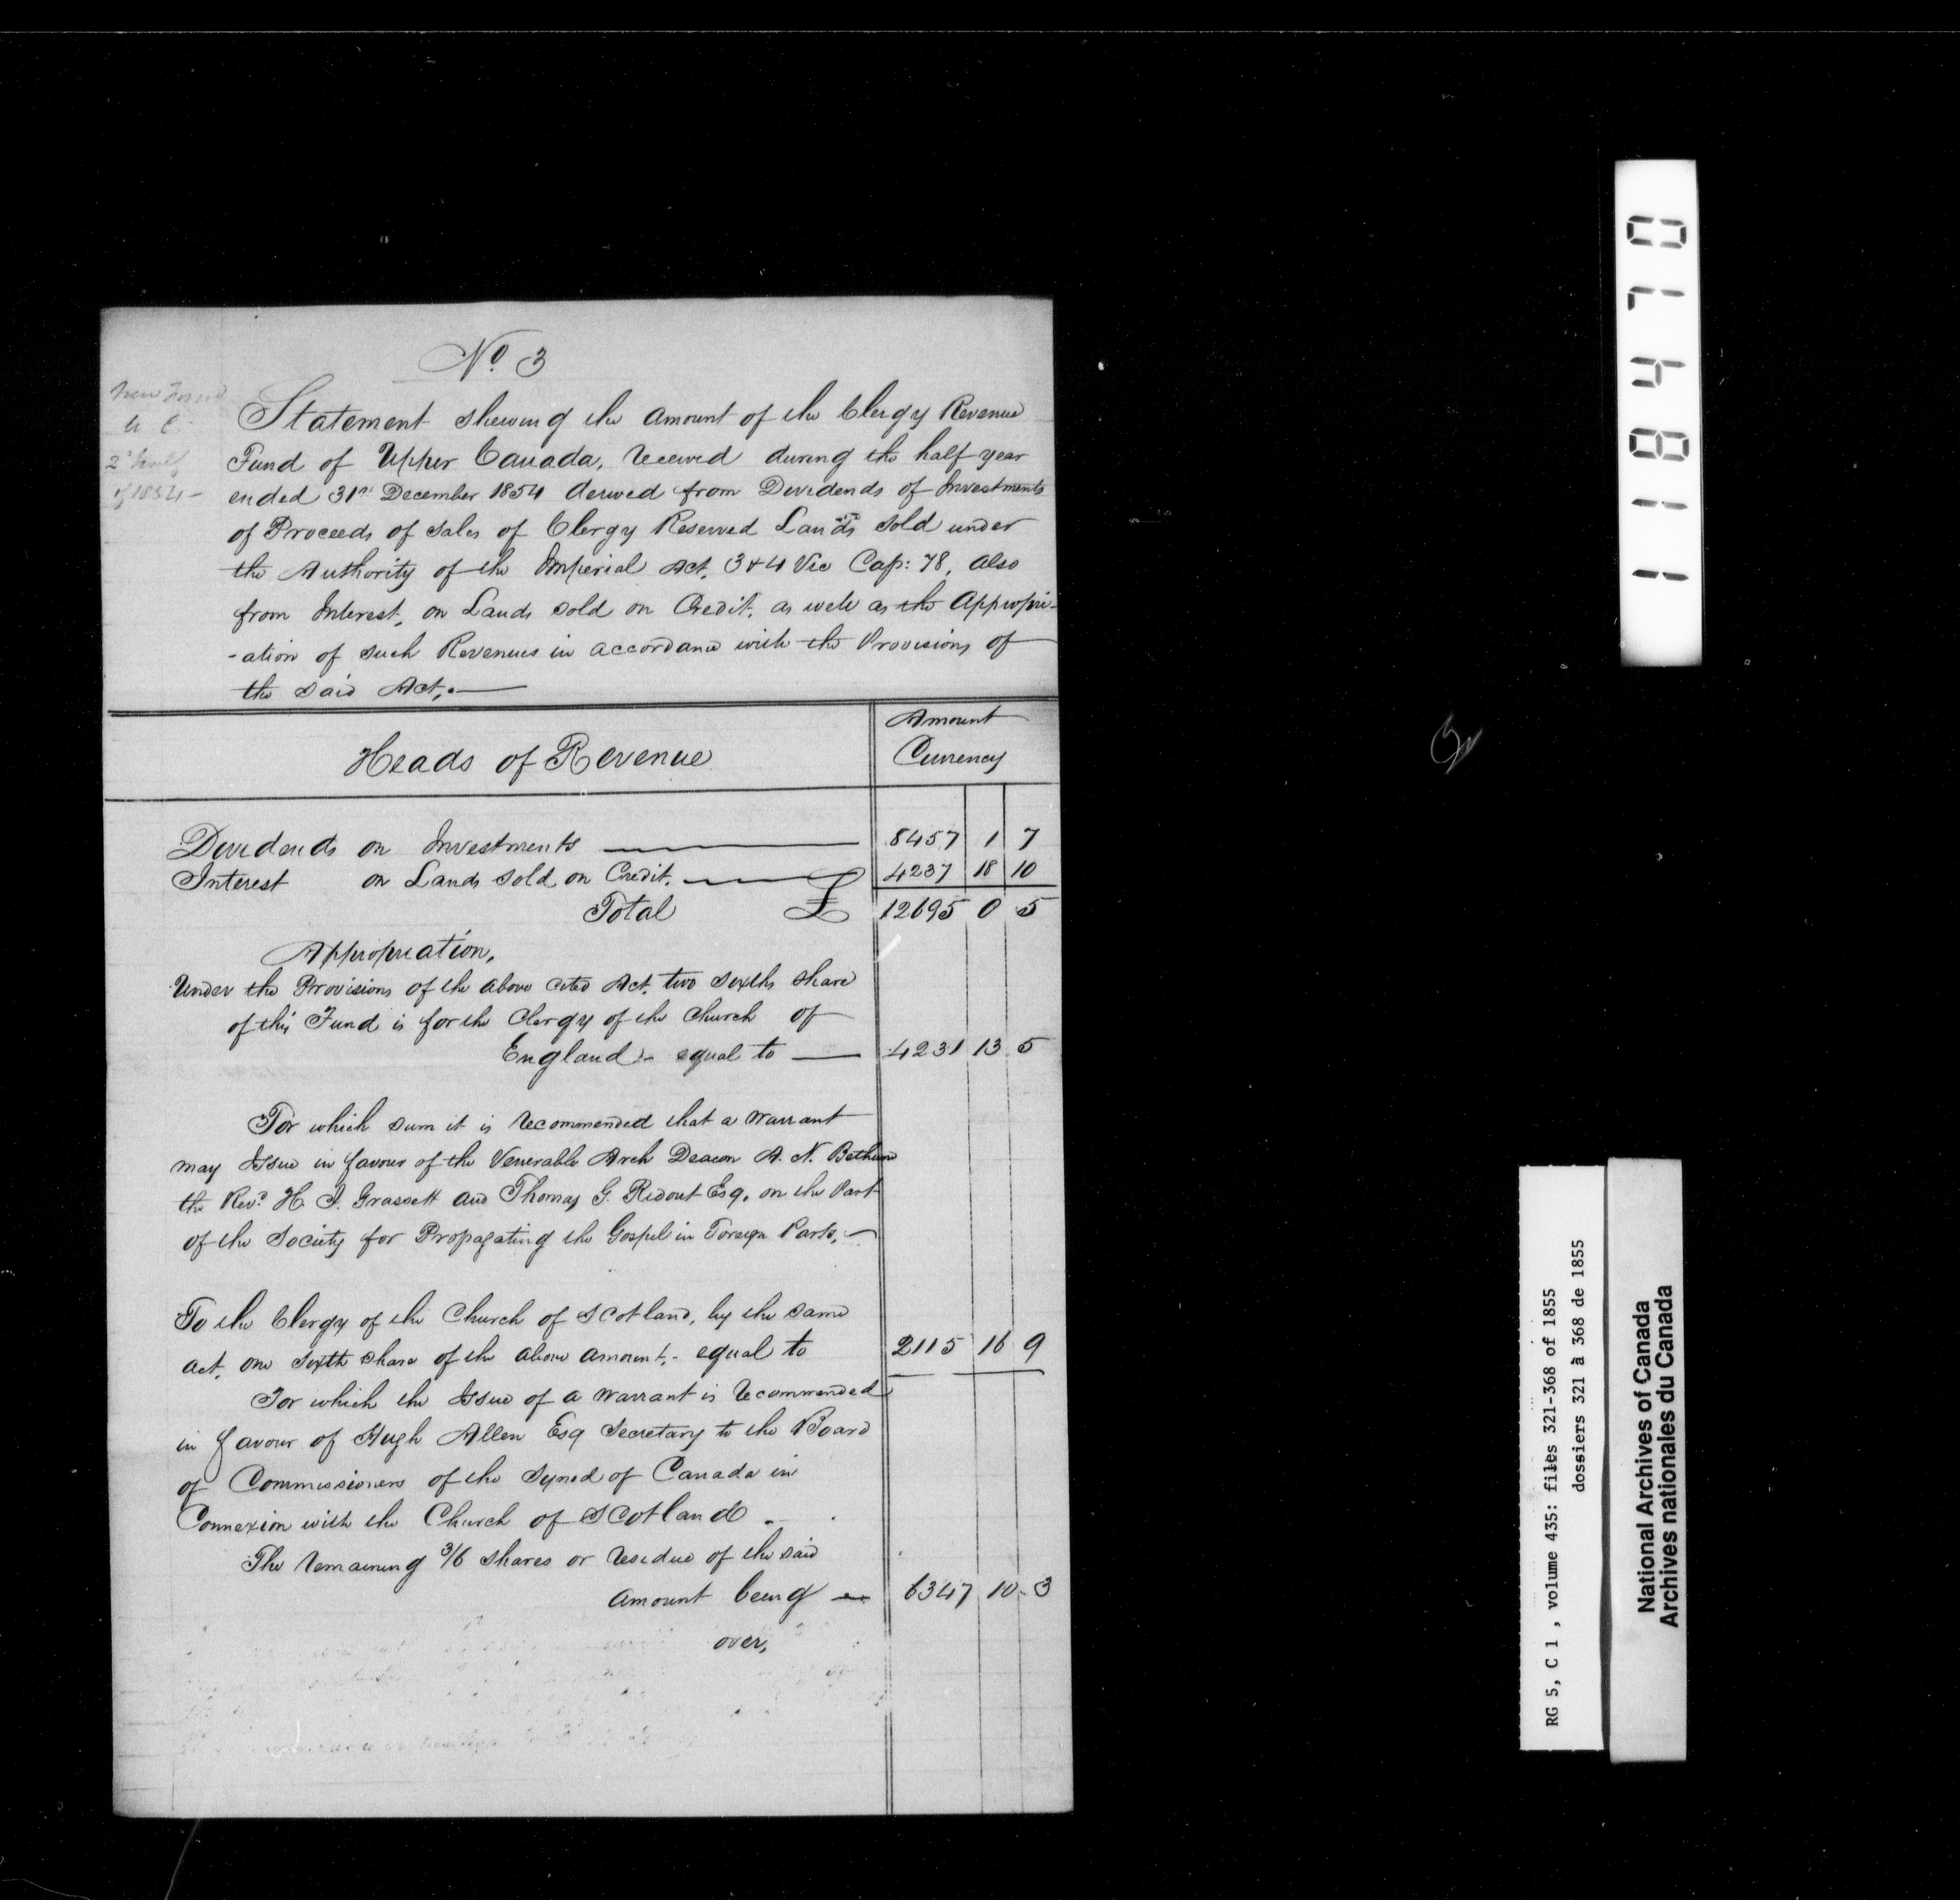 No. 3
New Fund
U C.
2d half
of 1854 -
Statement shewing the Amount of the Clergy Revenue
Fund of Upper Canada, received during the half year
ended 31st December 1854 derived from Dividends of Investments
of Proceeds of Sales of Clergy Reserved Lands sold under
the Authority of the Imperial Act, 3 & 4 Vic Cap: 78, also
from Interest, on Lands sold on Credit, as well as the Appropri-
-ation of such Revenues in accordance with the Provisions of
the said Act.
Heads of Revenue
Amount
Currency
Dividends on Investments 8457 1 7
Interest on Lands sold on Credit. 4237 18 10
Total £ 12695 0 5
Appropriation.
Under the Provisions of the above cited Act, two sixths share
of this Fund is for the Clergy of the Church of
England - equal to 4231 13 5
For which sum it is recommended that a Warrant
may Issue in favour of the Venerable Arch Deacon A. N. Bethune
the Revd. H. J. Grassett and Thomas G. Ridout Esq. on the Part
of the Society for Propagating the Gospel in Foreign Parts,
To the Clergy of the Church of Scotland, by the same
act, one sixth share of the above amount, - equal to 2115 16 9
For which the Issue of a Warrant is recommended
in favour of Hugh Allen Esq Secretary to the Board
of Commissioners of the Synod of Canada in
Connexion with the Church of Scotland .
The remaining 3/6 shares or residue of the said
amount being 6347 10 3
over,
118470
RG 5, C 1 , volume 435: files 321-368 of 1855
dossiers 321 à 368 de 1855
National Archives of Canada
Archives nationales du Canada